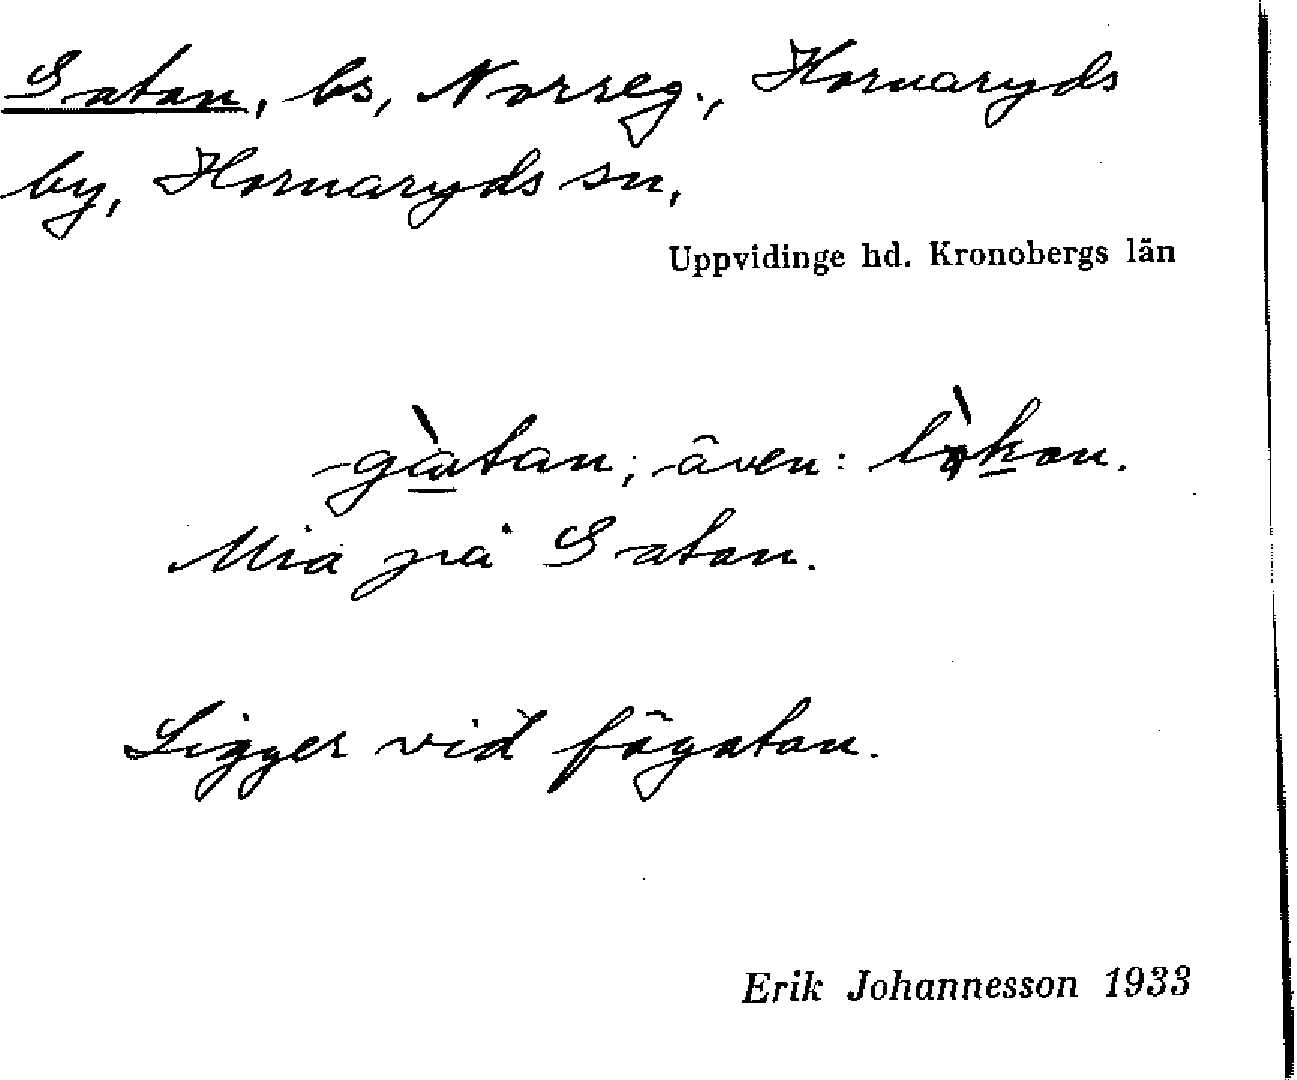 Gatan, bs, Norreg., Hornaryds
by, Hornaryds sn,
Uppvidinge hd. Kronobergs län
gàtan; även:
Mia på Gatan.
Ligger vid fägatan.
Erik Johannesson 1933